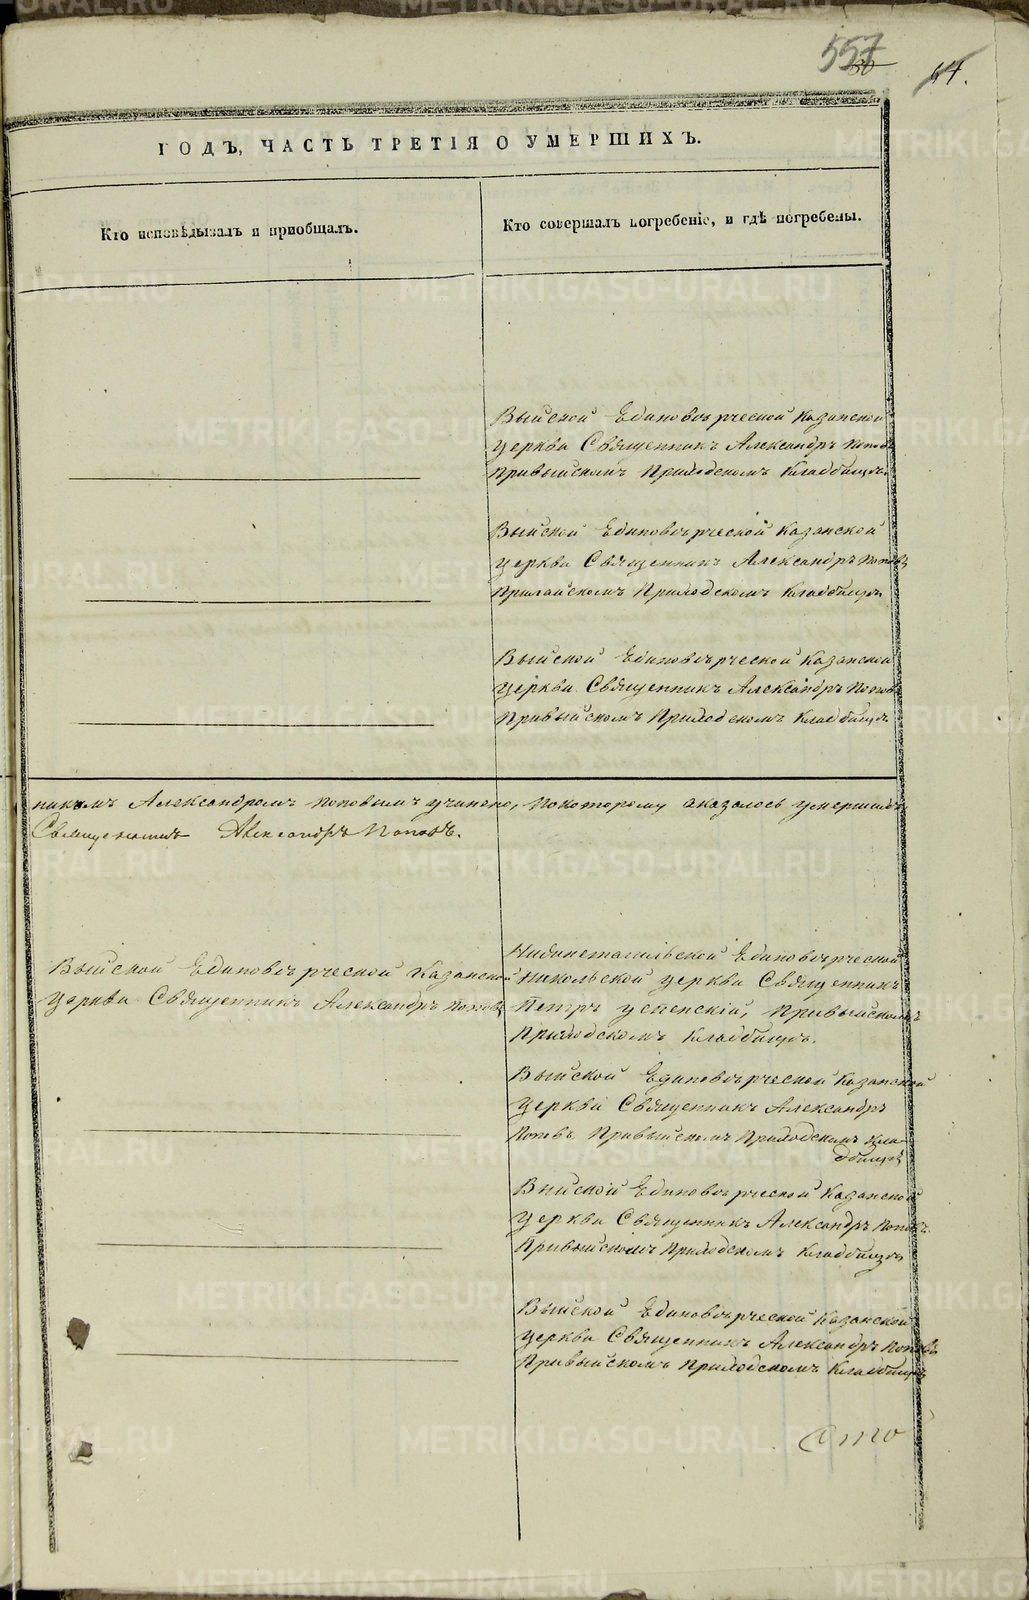 557
30
64.
ГОДЪ, ЧАСТЬ ТРЕТІЯ О УМЕРШИХЪ.
Кто исповѣдывалъ и пріобщалъ.
Кто совершалъ погребеніе, и гдѣ погребены.
Выйской Единовѣрческой Казанской
церкви Священникъ Александръ Поповъ
Привыйскомъ Приходскомъ Кладбищѣ.
Выйской Единовѣрческой Казанской
церкви Священникъ Александръ Поповъ
Приходскомъ Кладбищѣ
Выйской Единовѣрческой Казанской
церкви Священникъ Александръ Поповъ
Привыйскомъ Приходскомъ Кладбищѣ
никомъ Александромъ Поповымъ учинено, покоторому оказалось умершихъ
Священникъ Александръ Поповъ.
Выйской Единовѣрческой Казанской
церкви Священникъ Александръ Поповъ
Нижнетагильской Единовѣрческой
Никольской церкви Священникъ
Петръ Успенскій, Привыйскомъ
Приходскомъ Кладбищѣ.
Выйской Единовѣрческой Казанской
церкви Священникъ Александръ
Поповъ Привыйскомъ Приходскомъ Кла
дбищѣ
Выйской Единовѣрческой Казанской
церкви Священникъ Александръ Поповъ
Привыйскомъ Приходскомъ Кладбищѣ
Выйской Единовѣрческой Казанской
церкви Священникъ Александръ Поповъ
Привыйскомъ Приходскомъ Кладбищѣ
METRIKI.GASO-URAL.RU